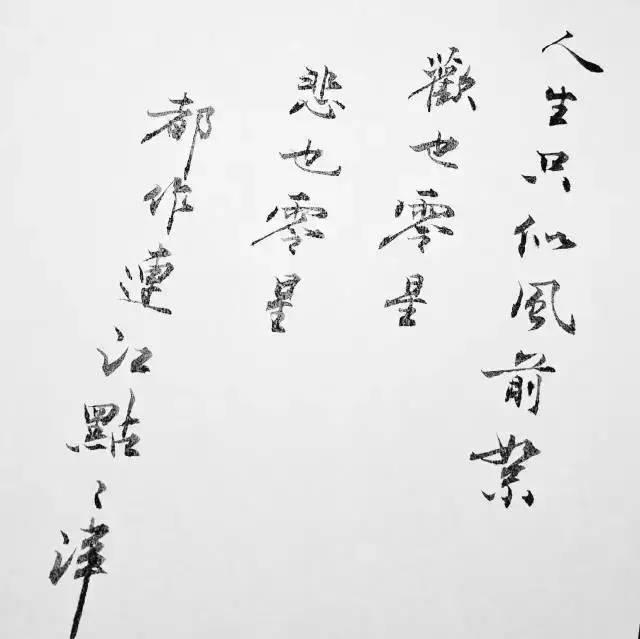 人生只似風前絮
歡也零星
悲也零星
都作連江點〻萍